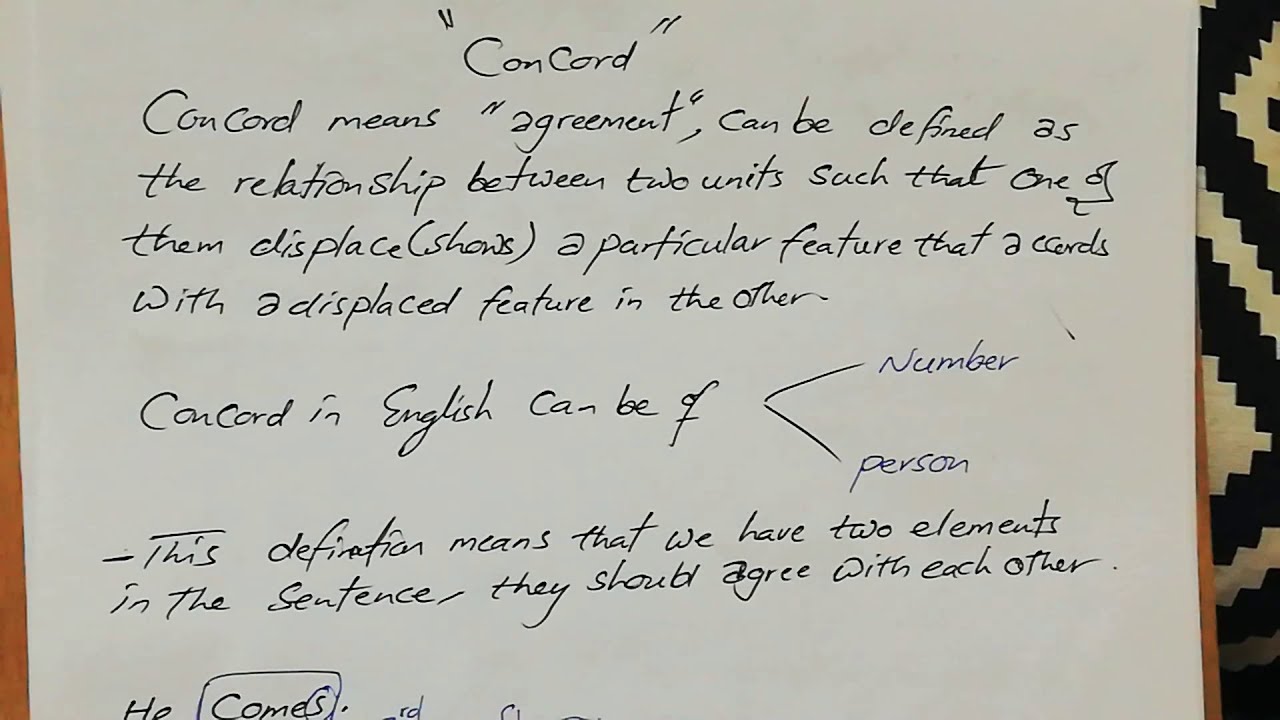 "Concord"
Concord means "agreement", can be defined as
the relationship between two units such that one of
them displace (shows) a particular feature that accords
with a displaced feature in the other.
Number
Concord in English can be of
person
- This definition means that we have two elements
in the sentence, they should agree with each other.
He comes. rd